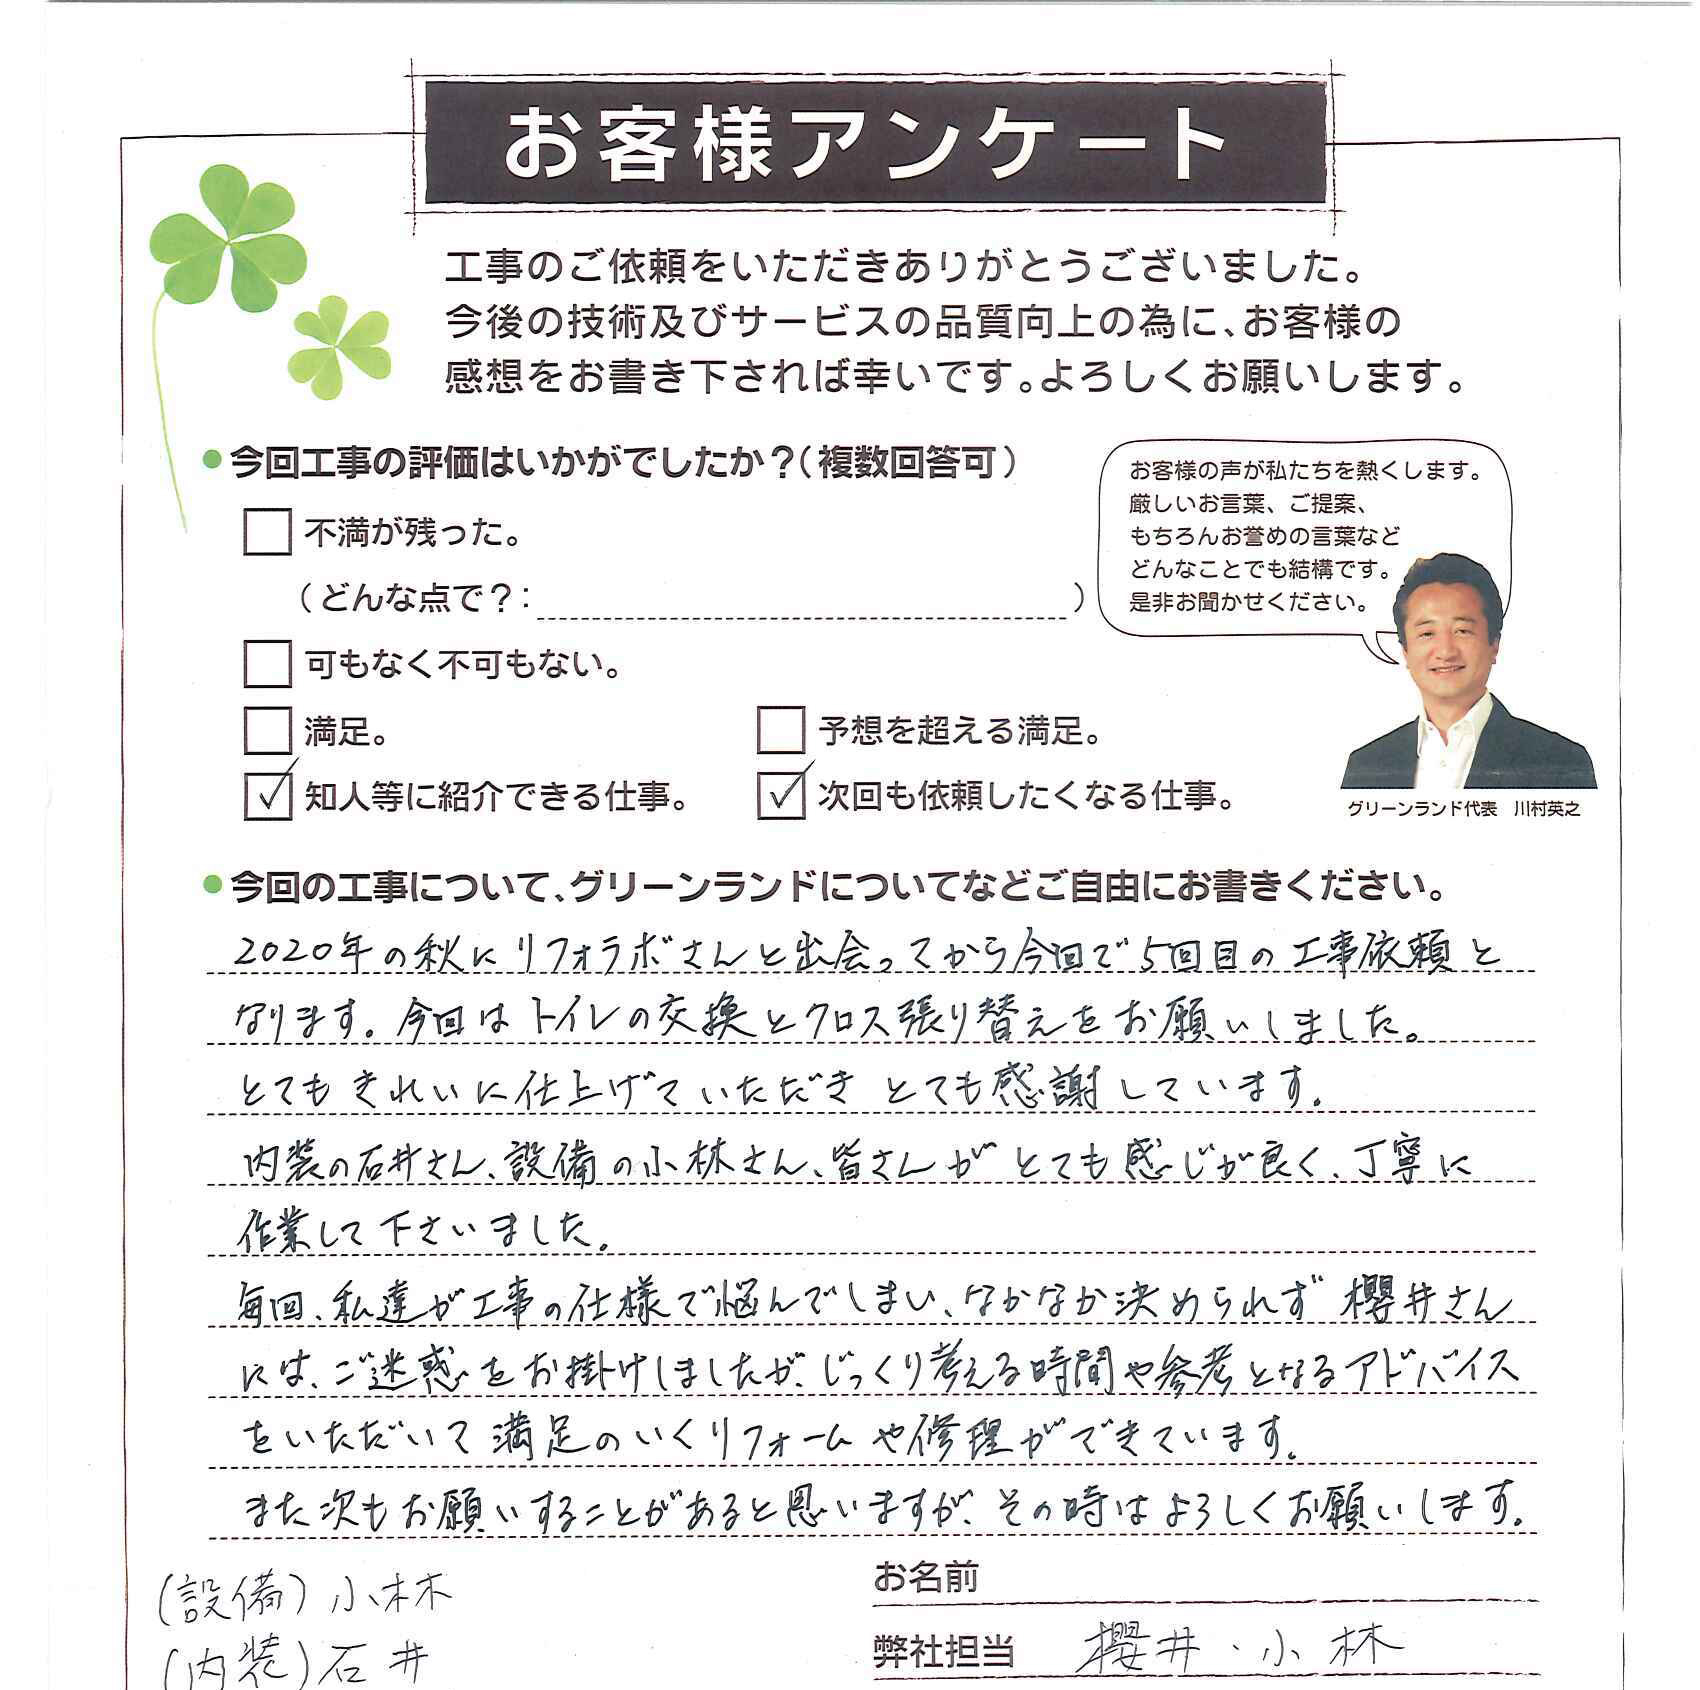 お客様アンケート
工事のご依頼をいただきありがとうございました。
今後の技術及びサービスの品質向上の為に、お客様の
感想をお書き下されば幸いです。よろしくお願いします。
今回工事の評価はいかがでしたか？（複数回答可）
不満が残った。
（どんな点で？： ）
可もなく不可もない。
満足。
予想を超える満足。
知人等に紹介できる仕事。
次回も依頼したくなる仕事。
お客様の声が私たちを熱くします。
厳しいお言葉、ご提案、
もちろんお誉めの言葉など
どんなことでも結構です。
是非お聞かせください。
グリーンランド代表　川村英之
今回の工事について、グリーンランドについてなどご自由にお書きください。
2020年の秋にリフォラボさんと出会ってから今回で5回目の工事依頼と
なります。今回はトイレの交換とクロス張り替えをお願いしました。
とてもきれいに仕上げていただき とても感謝しています。
内装の石井さん、設備の小林さん、皆さんが とても感じが良く、丁寧に
作業して下さいました。
毎回、私達が工事の仕様で悩んでしまい、なかなか決められず 櫻井さん
には、ご迷惑をお掛けしましたが、じっくり考える時間や参考となるアドバイス
をいただいて満足のいくリフォームや修理ができています。
また次もお願いすることがあると思いますが、その時はよろしくお願いします。
(設備) 小林
(内装) 石井
お名前
弊社担当 櫻井・小林